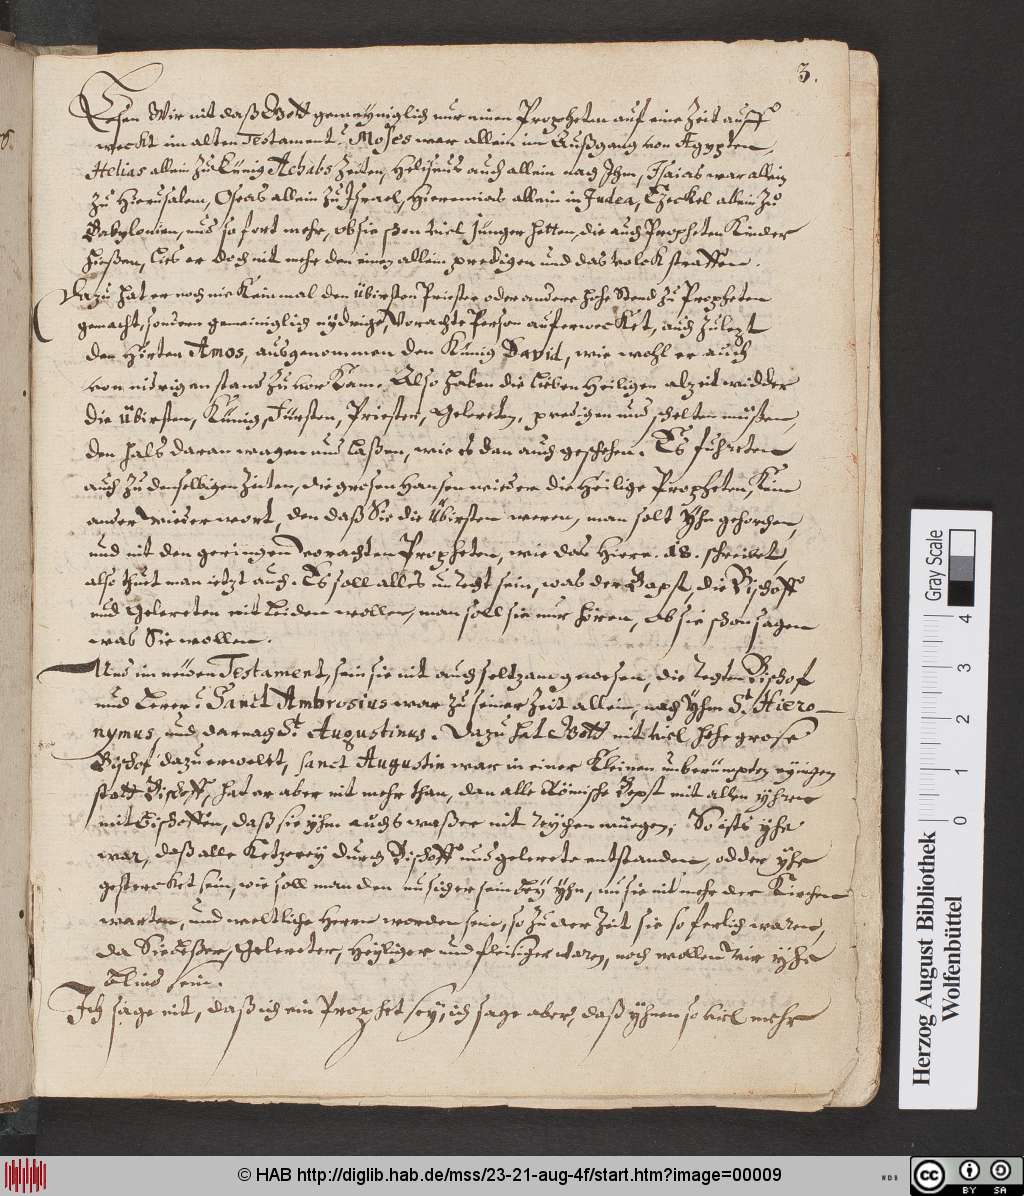 3.
Lesen Wir nit daß Gott gemeyniglich nur einen Propheten auf eine Zeit auff
weckt im alten Testament? Moses war allein im Außgang von Ägypten,
Helias allein zu König Achabs Zeiten, Heliseus auch allein nach Ihm, Isaias war allein
zu Hierusalem, Oseas allein zu Israel, Hieremias allein in Judea, Ezeckel allein zu
Babylonien, und so fort mehr, ob sie schon viel Jünger hetten, die auch Propheten Kinder
hießen, lies er doch nit mehr den einen allein predigen und das volck straffen.
Dazu hat er noch nie keinmal den übirsten Priester oder andere hohe Stend zu Propheten
gemacht, sondern gemeiniglich nydrige, vorachte Person auferwecket, auch zulezt
den Hirten Amos, ausgenommen den Künig David, wie wohl er auch
von nidrigen stand zuvor kam. Also haben die lieben Heiligen alzeit widder
die übirsten, Künig, Fürsten, Priester, Gelereten, predigen und schelten müßen,
den hals daran wagen und laßen, wie es dan auch geschehen. Es fuhreten
auch zu denselbigen Zeiten, die grosen Hansen wieder die Heilige Propheten, kein
ander wieder wort, den daß Sie die übirsten weren, man solt yhn gehorchen,
und nit den geringen vorachten Propheten, wie das Hiere. 18. schreibet,
also thuet man ietzt auch. Es soll alles unrecht sein, was der Bapst, die Bischoff
und Gelereten nit leiden wollen, man soll sie nur hören, ob sie schon sagen
was Sie wollen.
Und im neüen Testament, sein sie nit auch seltzam gwesen, die rechten Bischof
und Lerer? Sanct Ambrosius war zu seiner Zeit allein, nach yhm St. Hiero-
nymus, und darnach St. Augustinus. Dazu hat Gott nit viel hohe grose
Bischof dazu erwelet, sanct Augustin war in einer kleinen unberümpten eynigen
statt Bischoff, hat er aber nit mehr than, dan alle Römische Bepst mit allen yhren
mit Bischoffen, daß sie yhm auchs waßer nit reychen muegen; So ists yhe
war, daß alle Ketzerey durch Bischoff und gelerete entstanden, odder yhe
gestercket sein, wie soll man den nu sicher sein bey yhn, nu sie nit mehr der Kirchen
warten, und weltliche Herrn worden sein, so zu der Zeit sie so ferlich waren,
da Sie beßer, Gelereter, Heyliger und fleisiger waren, noch wollen wir yhe
blind sein.
Ich sage nit, daß ich ein Prophet sey, ich sage aber, daß yhnen so viel mehr
Herzog August Bibliothek
Wolfenbüttel
Gray Scale
0 1 2 3 4
© HAB http://diglib.hab.de/mss/23-21-aug-4f/start.htm?image=00009
WDB
CC BY SA